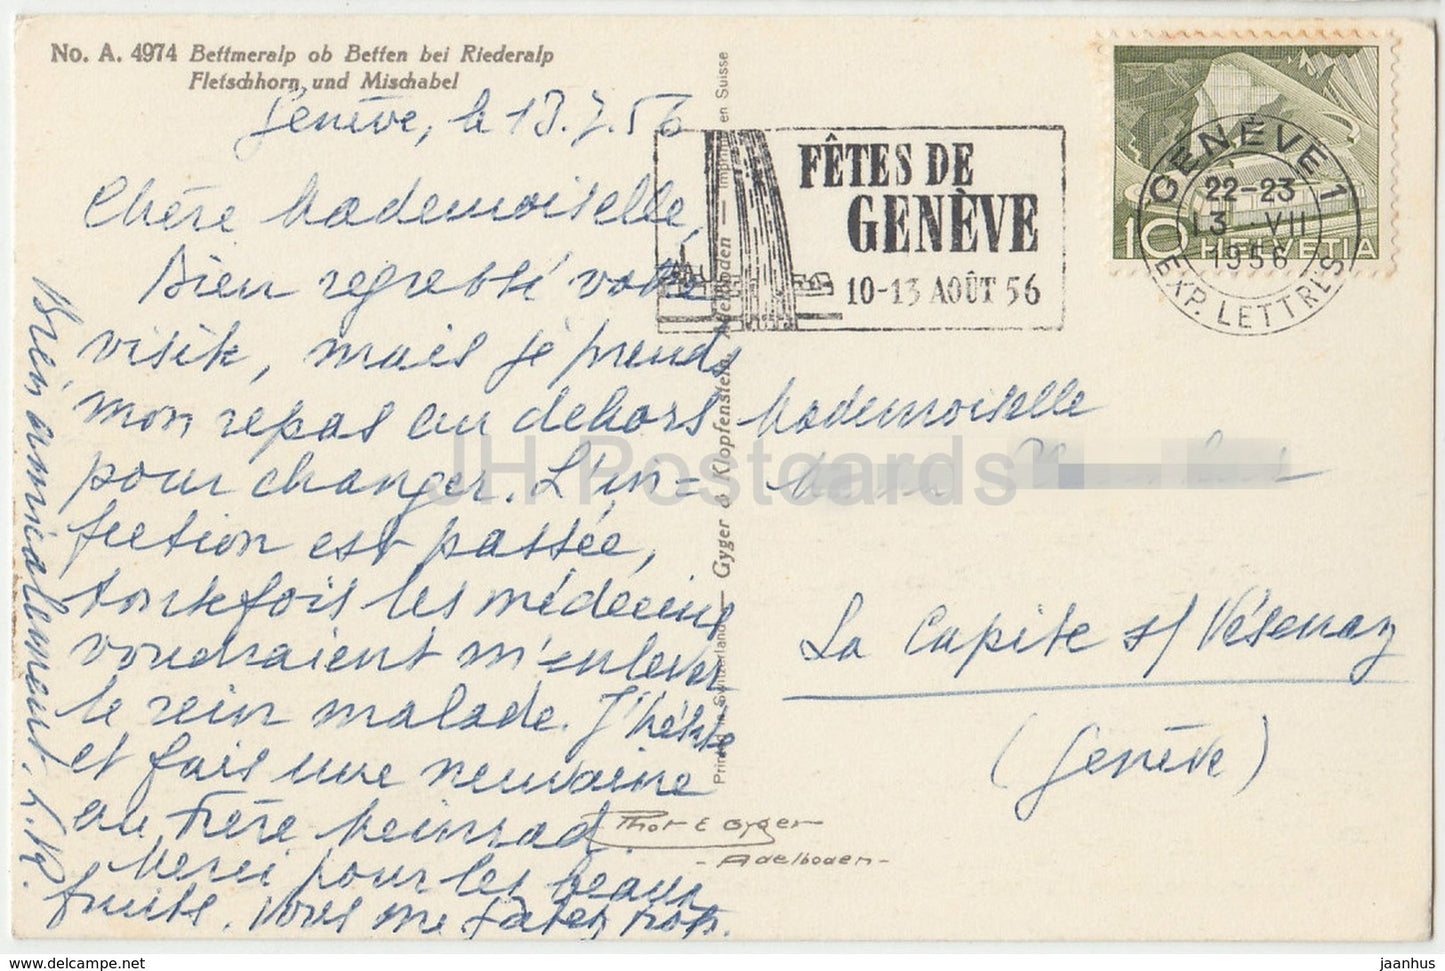 No. A. 4974 Bettmeralp ob Betten bei Riederalp
Fletschhorn und Mischabel
Genève, le 13.7.56
Chère Mademoiselle,
Bien regretté votre
visite, mais je prends
mon repas au dehors
pour changer. L'in=
fection est passée,
toutefois les médecins
voudraient m'enlever
le rein malade. J'hésite
et fais une neuvaine
au Frère Meinrad.
Merci pour les beaux
fruits. Vous me gâtez trop.
Bien amicalement, L. R.
Printed in Switzerland — Gyger & Klopfenstein, Adelboden — Imprimé en Suisse
FÊTES DE
GENÈVE
10-13 AOÛT 56
GENÈVE 1
22-23
13 VII
1956
EXP. LETTRES
10 HELVETIA
Mademoiselle
La Capite s/ Vésenaz
(Genève)
Phot E Gyger
- Adelboden -
JH Postcards
hip-live.com
jaanhus